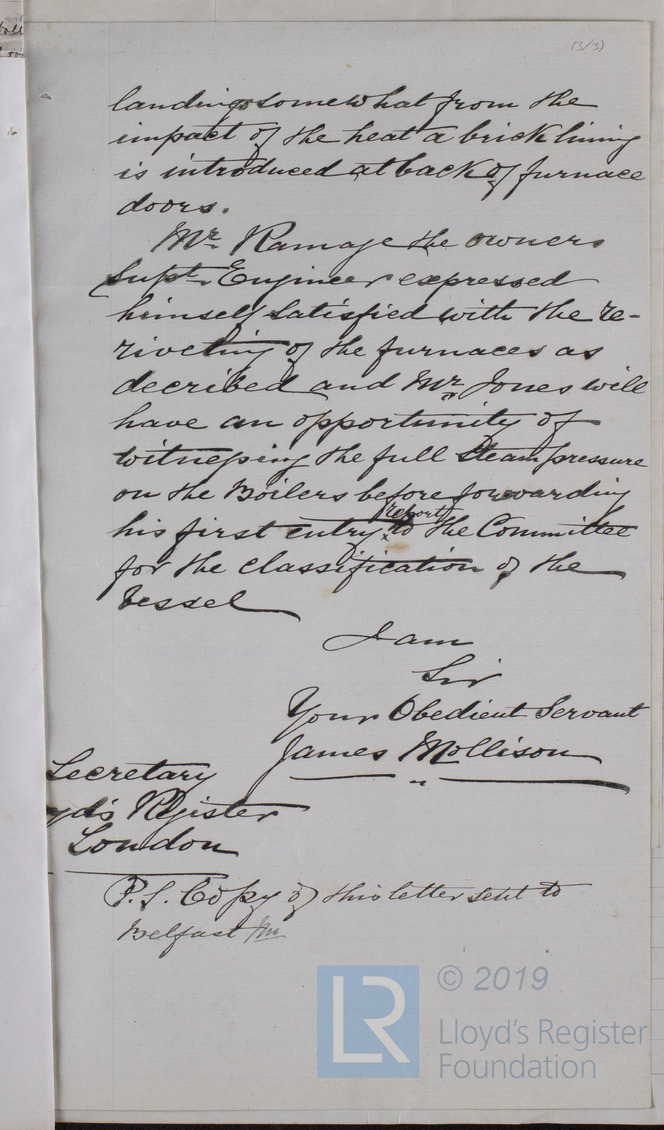 (3/3)
landings somewhat from the
impact of the heat a brick lining
is introduced at back of furnace
doors.
Mr. Ramage the owners
Supt. Engineer expressed
himself satisfied with the re-
riveting of the furnaces as
decribed and Mr. Jones will
have an opportunity of
witnessing the full Steam pressure
on the Boilers before forwarding
report
his first entry x to the Committee
for the classification of the
Vessel
I am
Sir
Your Obedient Servant
James Mollison
Secretary
yd's Register
London
P.S. Copy of this letter sent to
Belfast JM
LR
© 2019
Lloyd's Register
Foundation